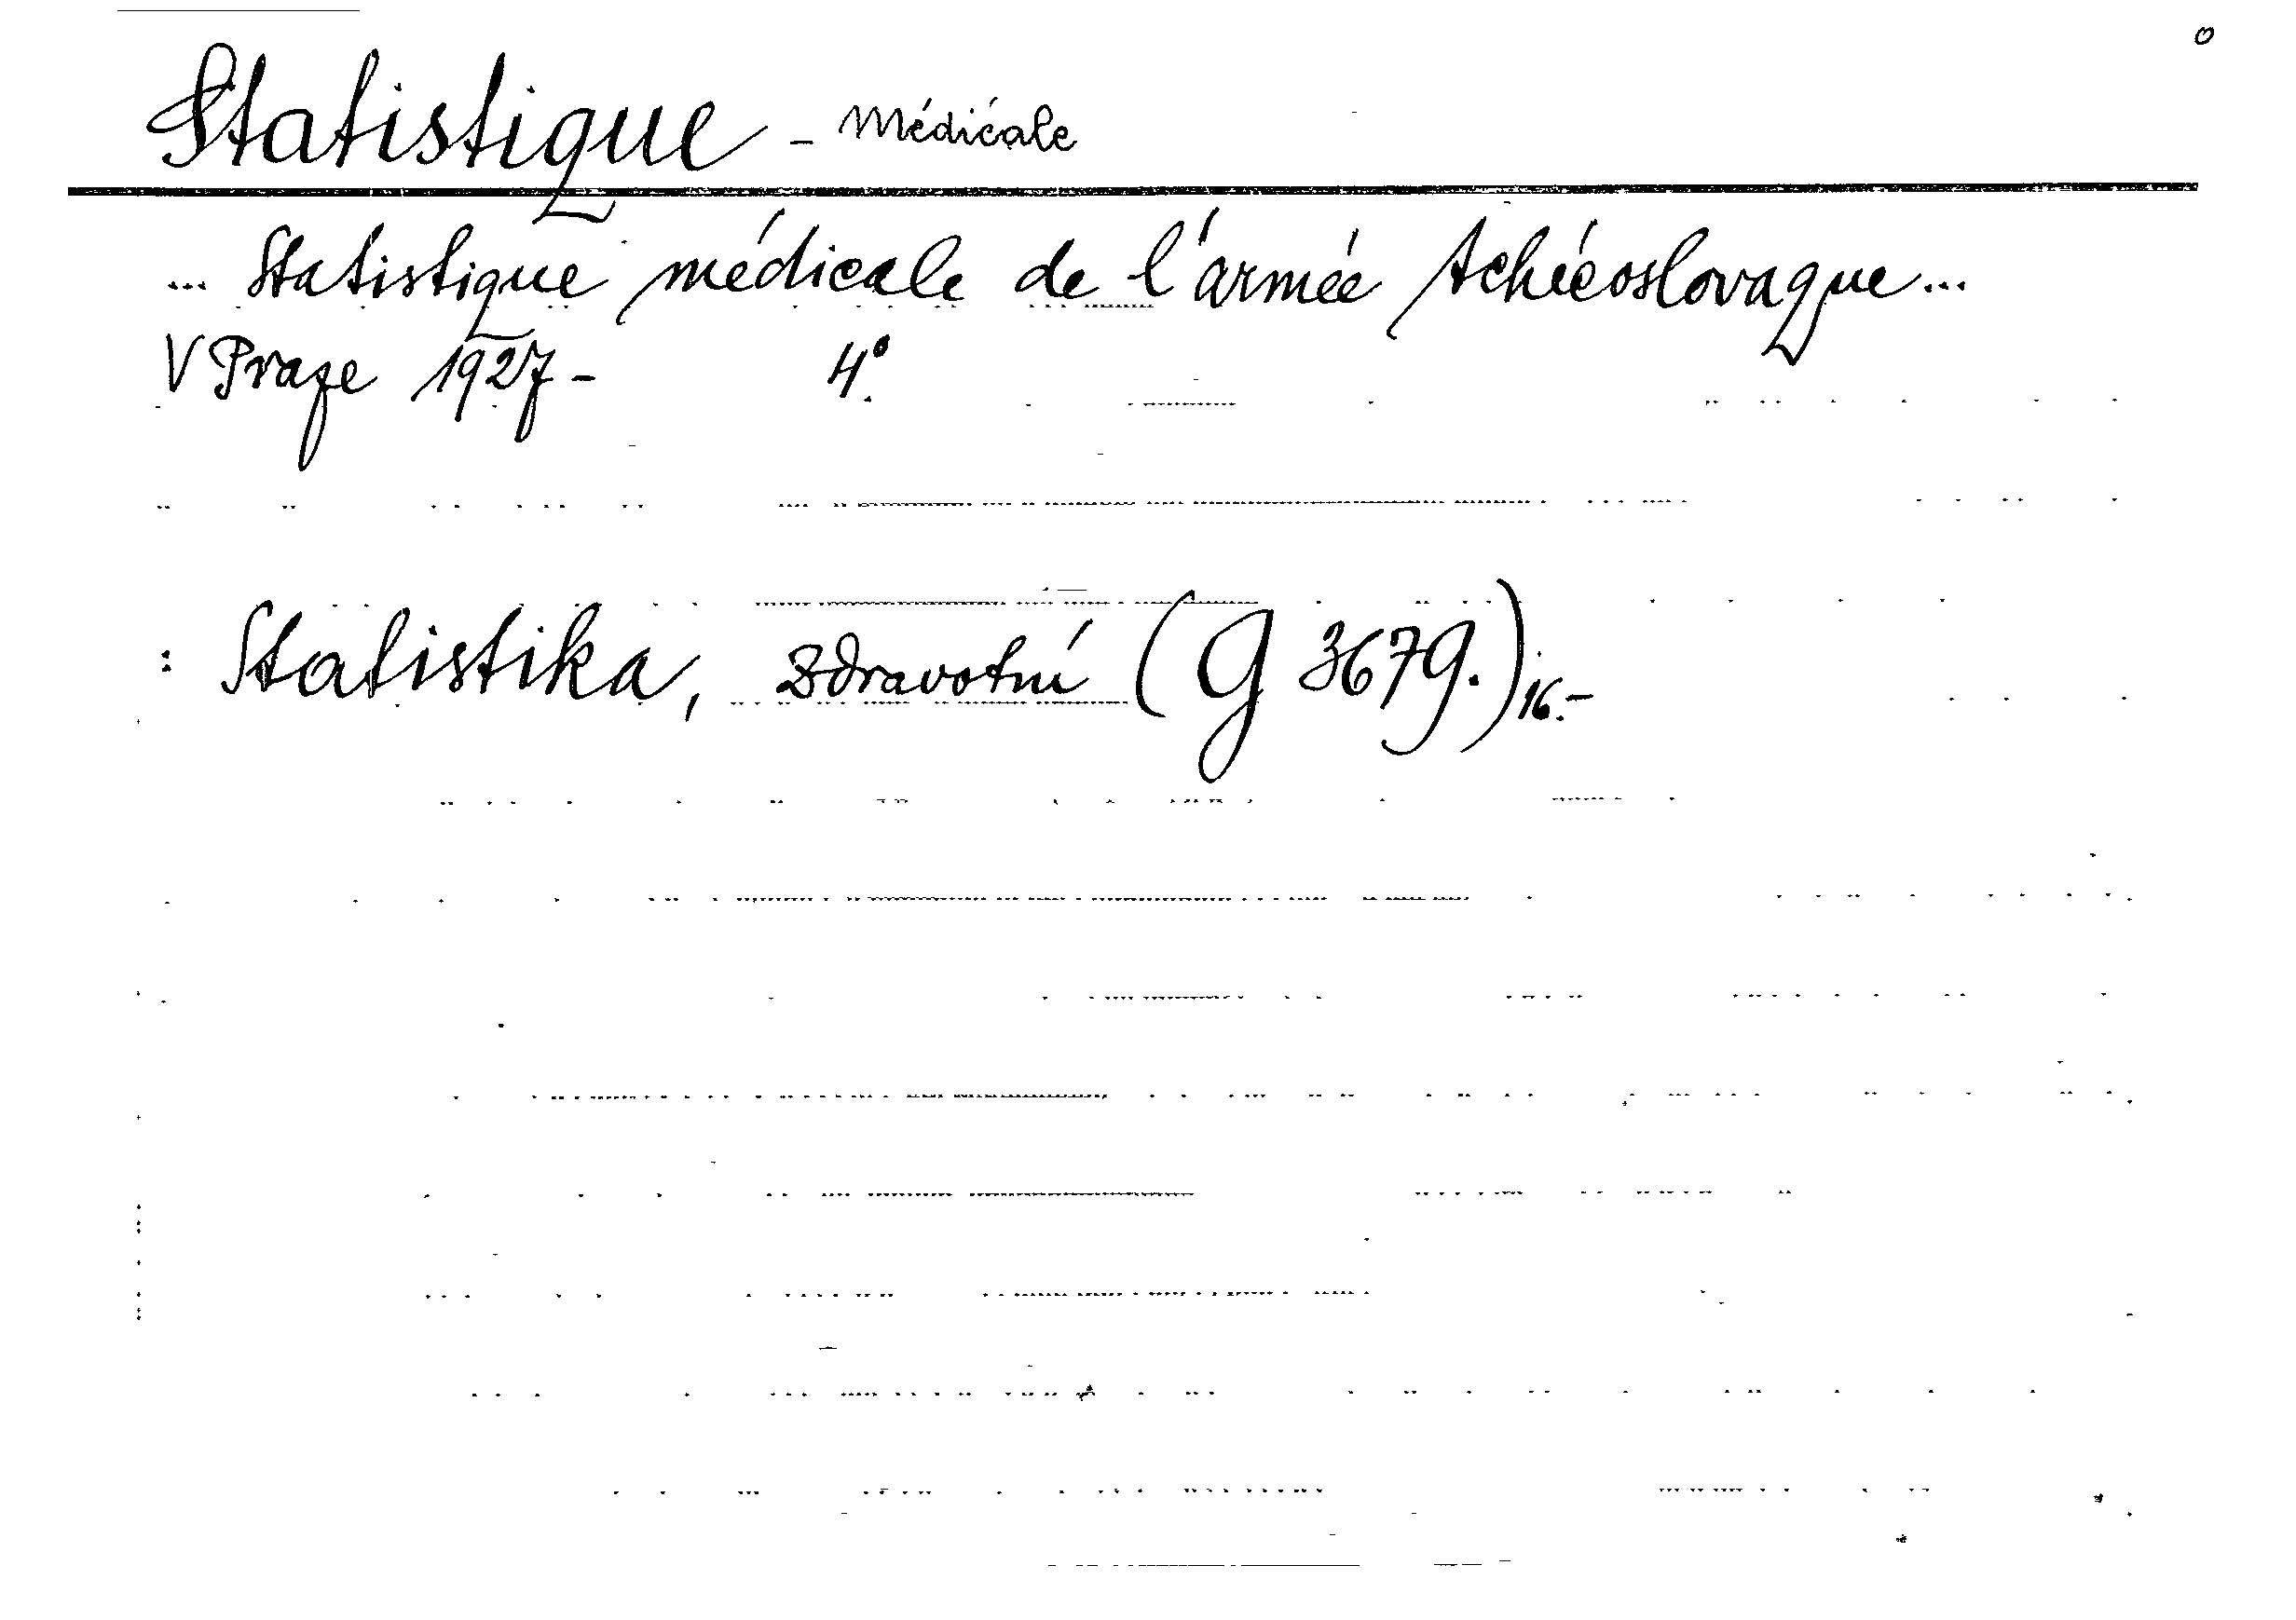 Statistique - Médicale
... Statistique médicale de l'armée tchécoslovaque...
V Praze 1927- 4°.
: Statistika, zdravotní (G 3679.) 16.-